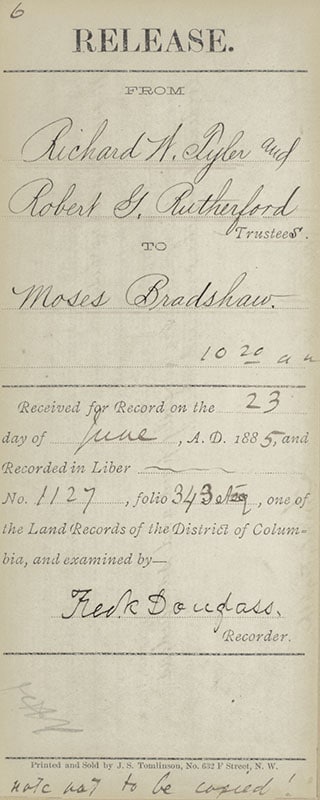 6
RELEASE.
FROM
Richard W. Tyler and
Robert G. Rutherford
Trustees.
TO
Moses Bradshaw.
10 20 a m
Received for Record on the 23
day of June, A. D. 1885, and
Recorded in Liber
No. 1127, folio 343 et seq, one of
the Land Records of the District of Colum-
bia, and examined by—
Fredk Douglass.
Recorder.
Printed and Sold by J. S. Tomlinson, No. 632 F Street, N. W.
note not to be copied!